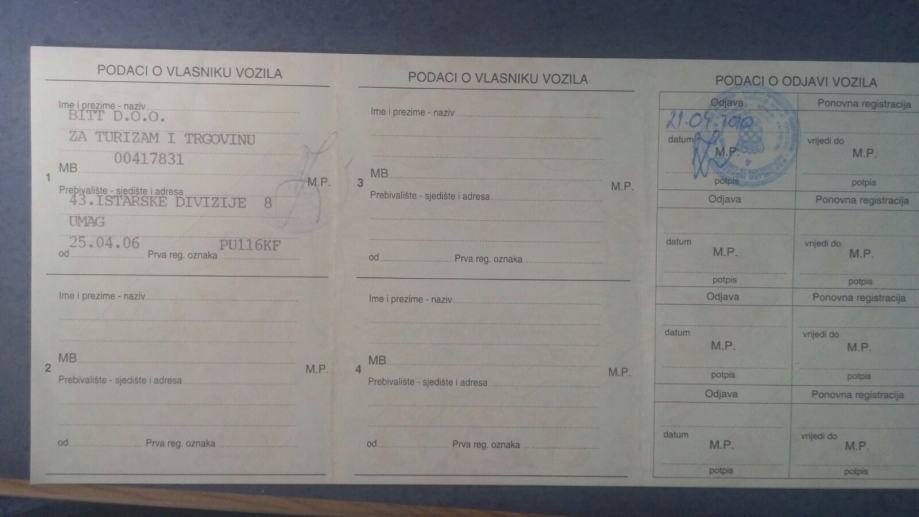 PODACI O VLASNIKU VOZILA
Ime i prezime - naziv
BITT D.O.O.
ZA TURIZAM I TRGOVINU
MB 00417831
1 M.P.
Prebivalište - sjedište i adresa
43.ISTARSKE DIVIZIJE 8
UMAG
25.04.06 PU116KF
od Prva reg. oznaka
Ime i prezime - naziv
MB
2 M.P.
Prebivalište - sjedište i adresa
od Prva reg. oznaka
PODACI O VLASNIKU VOZILA
Ime i prezime - naziv
MB
3 M.P.
Prebivalište - sjedište i adresa
od Prva reg. oznaka
Ime i prezime - naziv
MB
4 M.P.
Prebivalište - sjedište i adresa
od Prva reg. oznaka
PODACI O ODJAVI VOZILA
Odjava Ponovna registracija
21.09.
datum vrijedi do
M.P. M.P.
potpis potpis
Odjava Ponovna registracija
datum vrijedi do
M.P. M.P.
potpis potpis
Odjava Ponovna registracija
datum vrijedi do
M.P. M.P.
potpis potpis
Odjava Ponovna registracija
datum vrijedi do
M.P. M.P.
potpis potpis